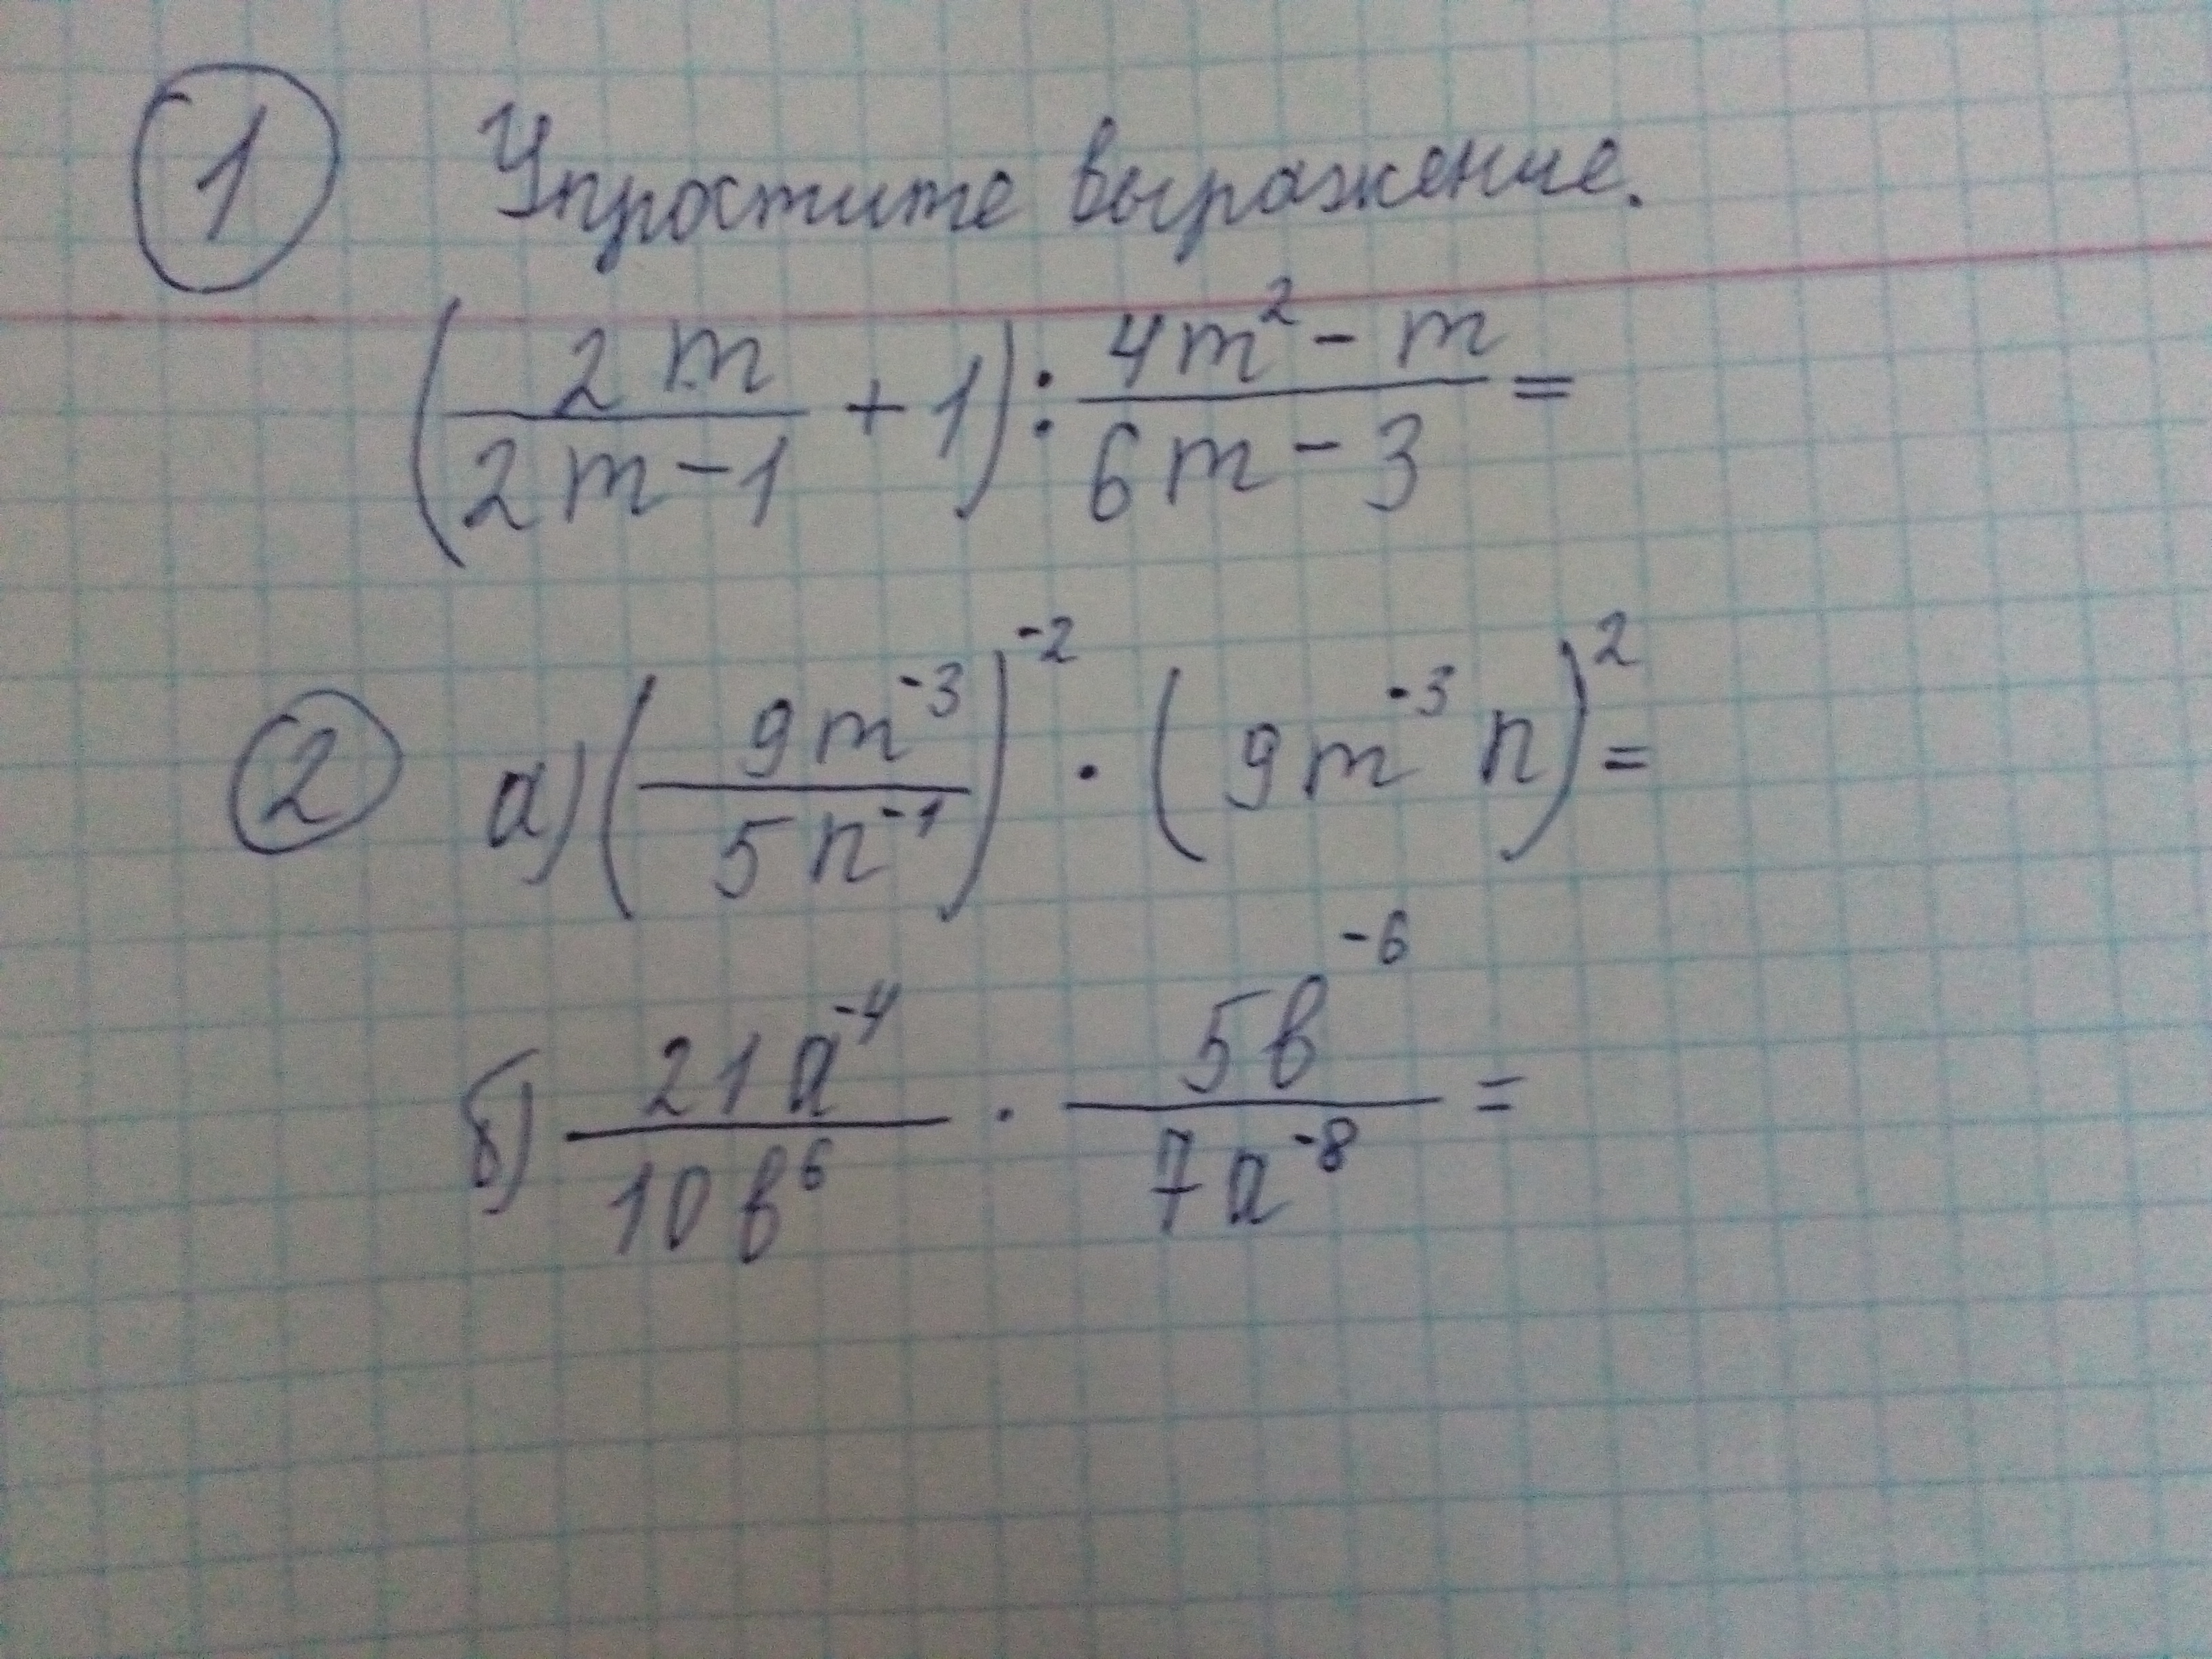 1 Упростите выражение.
(2m/(2m-1) + 1) : (4m² - m)/(6m - 3) =
2 а) (9m⁻³/5n⁻¹)⁻² · (9m⁻³ n)² =
б) 21a⁻⁴/10b⁶ · 5b⁻⁶/7a⁻⁸ =